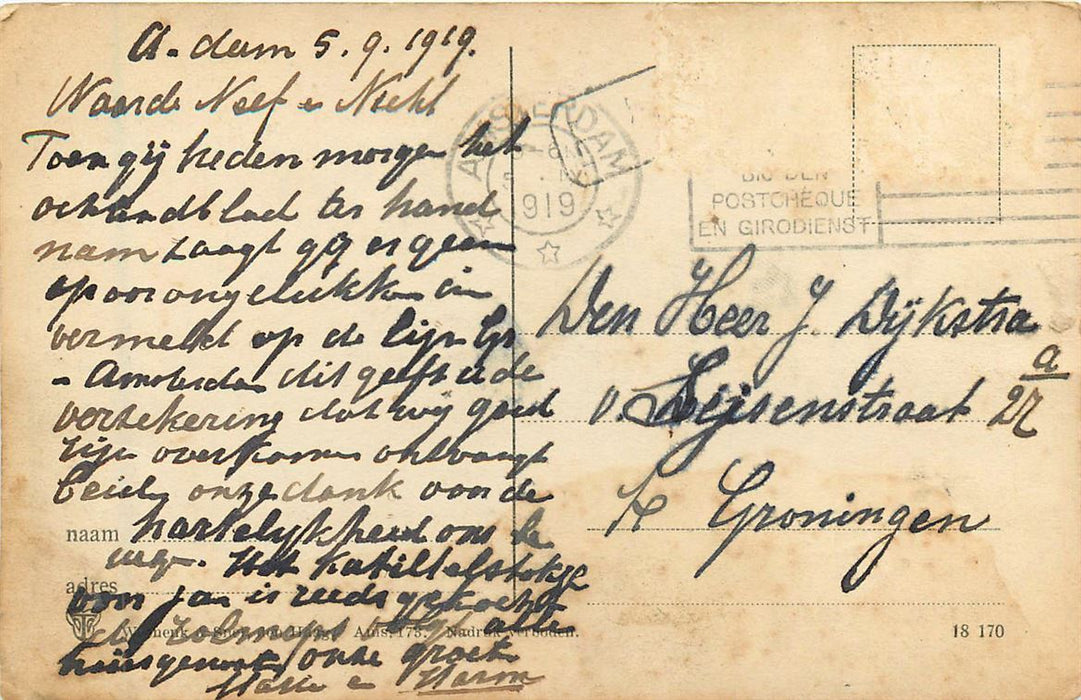 A-dam 5.9.1919.
Waarde Neef en Nicht
Toen gij heden morgen het
ochtendblad ter hand
nam zaagt gij er geen
spoorongelukken in
vermeld op de lijn
- Amsterdam dit geeft u de
verzekering dat wij goed
zijn overkomen ontvangt
beide onze dank voor de
hartelijkheid ons
Het
voor Jan is reeds gekocht
alle
huisgenoten onze groet
en Harm
naam
adres
Ams. 173. Nadruk verboden.
AMSTERDAM
1919
BIJ DEN
POSTCHEQUE
EN GIRODIENST
Den Heer J. Dijkstra
v. Sijsenstraat 27a
te Groningen
18 170